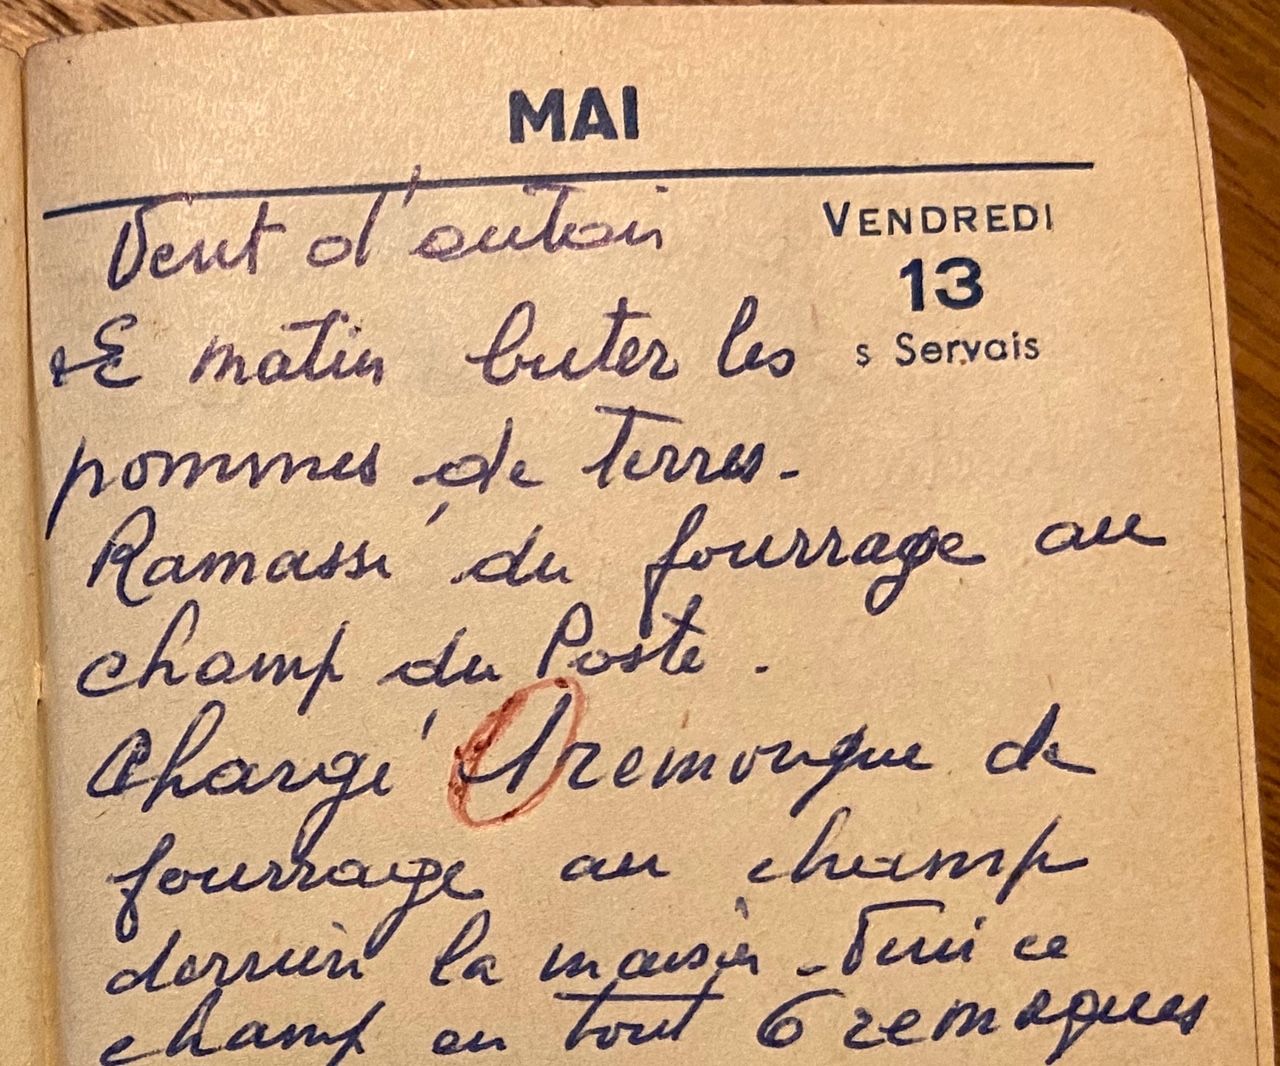 MAI
Vent d'autan
VENDREDI
13
s Servais
Le matin buter les
pommes de terres.
Ramassé du fourrage au
champ du Poste.
Chargé 1 remorque de
fourrage au champ
derrière la maison - Fini ce
champ en tout 6 remorques